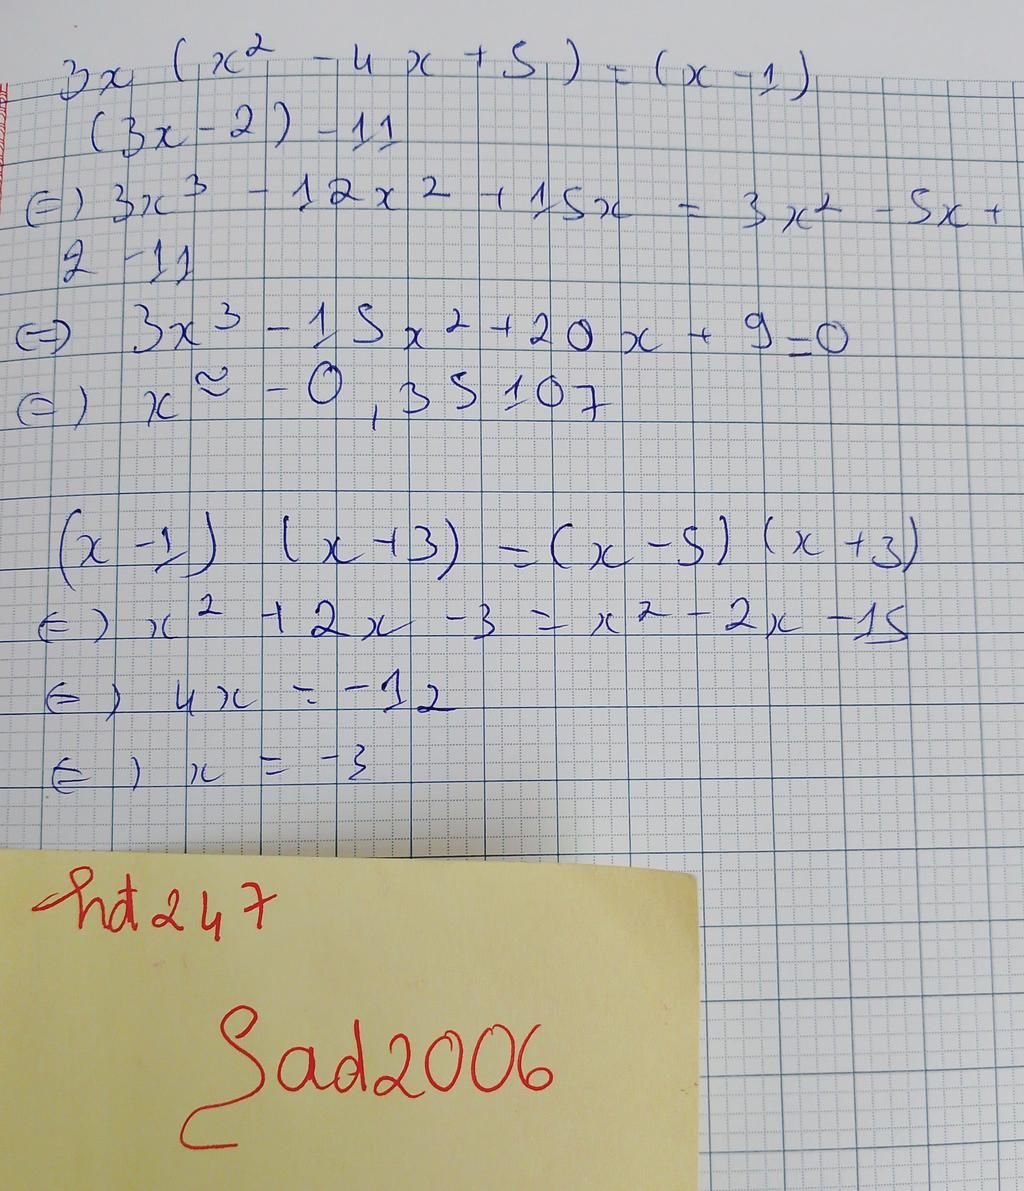 3x (x² - 4x + 5) = (x - 1)
(3x - 2) - 11
⇔ 3x³ - 12x² + 15x = 3x² - 5x +
2 - 11
⇔ 3x³ - 15x² + 20x + 9 = 0
⇔ x ≈ - 0,35107
(x - 1) (x + 3) = (x - 5) (x + 3)
⇔ x² + 2x - 3 = x² - 2x - 15
⇔ 4x = - 12
⇔ x = - 3
hd247
Sad2006